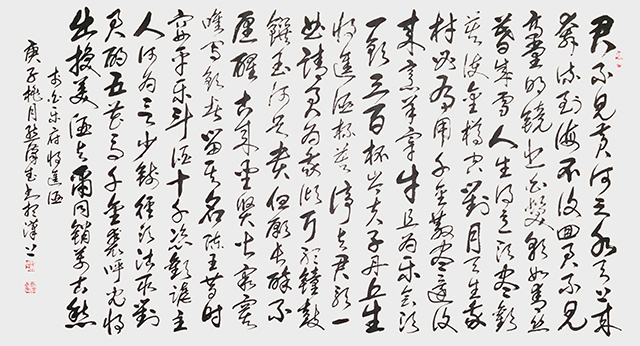 君不見黄河之水天上来
奔流到海不復回君不見
高堂明镜悲白髮朝如青丝
暮成雪人生得意须尽歡
莫使金樽空對月天生我
材必有用千金散盡還復
来烹羊宰牛且为乐会须
一飲三百杯岑夫子丹丘生
将進酒杯莫停与君歌一
曲請君为我傾耳聽鐘鼓
饌玉何足貴但願長醉不
愿醒古来聖賢皆寂寞
唯有飲者留其名陈王昔時
宴平乐斗酒十千恣歡謔主
人何为言少钱径须沽取對
君酌五花马千金裘呼兒将
出换美酒与爾同銷萬古愁
李白乐府将進酒
庚子桃月书於漢上